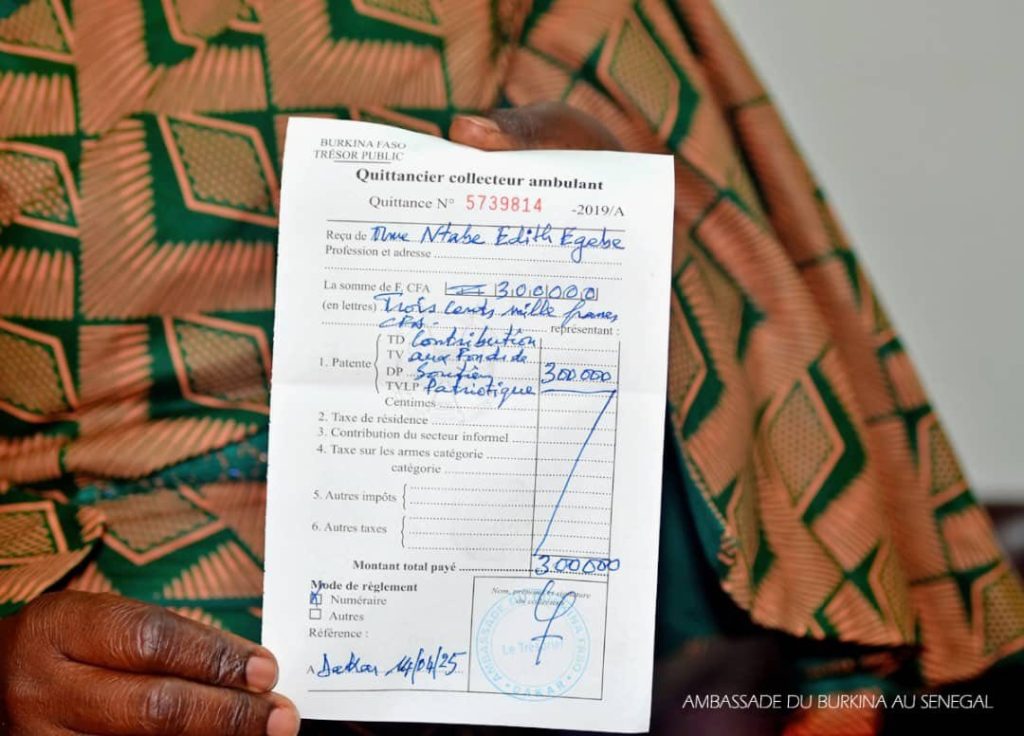 BURKINA FASO
TRÉSOR PUBLIC
Quittancier collecteur ambulant
Quittance N° 5739814 -2019/A
Reçu de Mme Ntabe Edith Egebe
Profession et adresse
La somme de F. CFA 300000
(en lettres) Trois cents mille francs
CFA. représentant :
1. Patente
TD Contribution
TV aux Fonds de
DP Soutien 300000
TVLP Patriotique
Centimes
2. Taxe de résidence
3. Contribution du secteur informel
4. Taxe sur les armes catégorie
catégorie
5. Autres impôts
6. Autres taxes
Montant total payé 300000
Mode de règlement
Numéraire
Autres
Référence :
A Dakar 14/04/25
Nom, prénoms et signature
du collecteur
AMBASSADE DU BURKINA FASO
Le Trésorier
DAKAR
AMBASSADE DU BURKINA AU SENEGAL